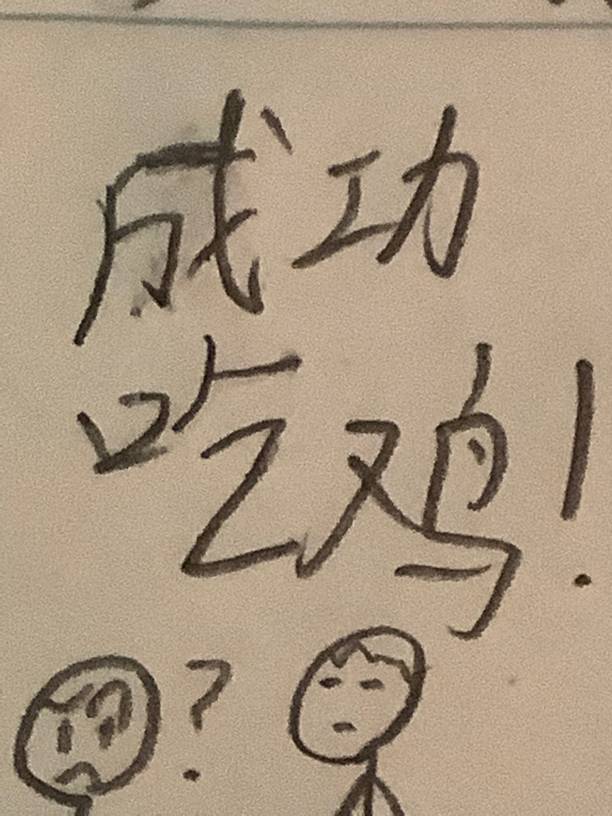 成功
吃鸡!
?